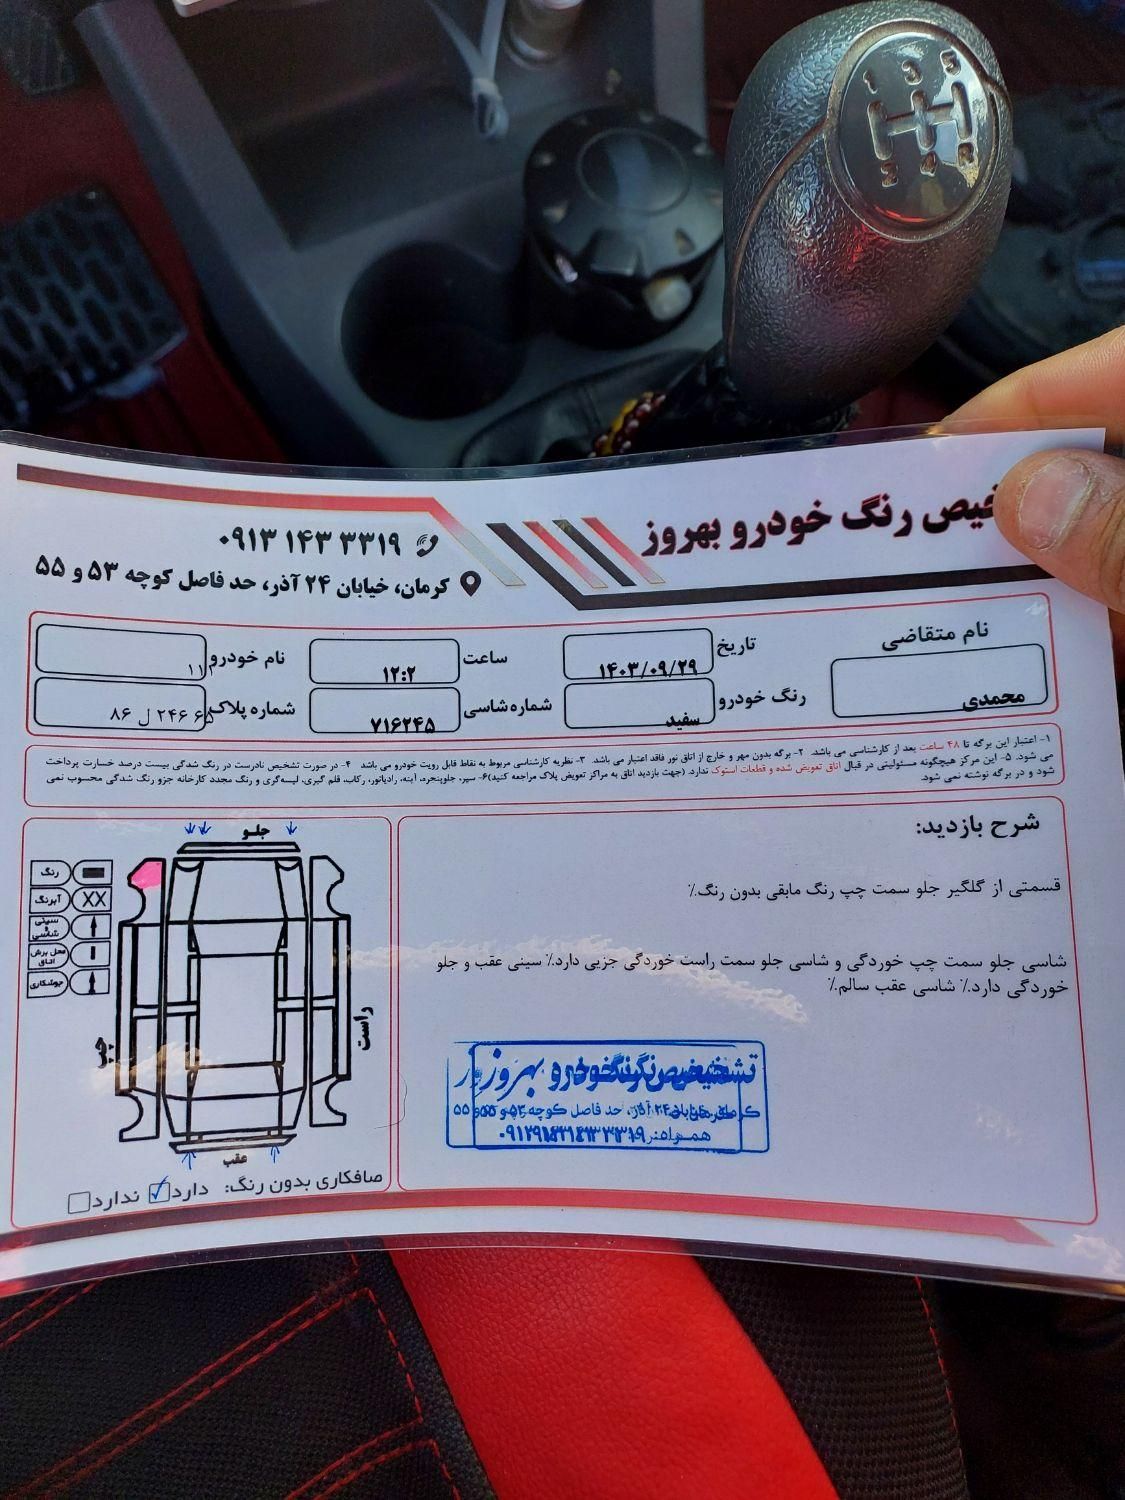 1 3 5
2 4 R
رنگ خودرو بهروز
۰۹۱۳ ۱۴۳ ۳۳۱۹
کرمان، خیابان ۲۴ آذر، حد فاصل کوچه ۵۳ و ۵۵
نام متقاضی
محمدی
تاریخ
۱۴۰۳/۰۹/۲۹
ساعت
۱۲:۲
نام خودرو
رنگ خودرو
سفید
شماره شاسی
۷۱۶۲۴۵
شماره پلاک
۸۶ ل ۲۴۶ ۶۵
۱- اعتبار این برگه تا ۴۸ ساعت بعد از کارشناسی می باشد. ۲- برگه بدون مهر و خارج از اتاق نور فاقد اعتبار می باشد. ۳- نظریه کارشناسی مربوط به نقاط قابل رویت خودرو می باشد ۴- در صورت تشخیص نادرست در رنگ شدگی بیست درصد خسارت پرداخت
می شود. ۵- این مرکز هیچگونه مسئولیتی در قبال اتاق تعویض شده و قطعات استوک ندارد. (جهت بازدید اتاق به مراکز تعویض پلاک مراجعه کنید) ۶- سپر، جلوپنجره، آینه، رادیاتور، رکاب، قلم گیری، لیسه‌گری و رنگ مجدد کارخانه جزو رنگ شدگی محسوب نمی
شود و در برگه نوشته نمی شود.
شرح بازدید:
قسمتی از گلگیر جلو سمت چپ رنگ مابقی بدون رنگ.٪
شاسی جلو سمت چپ خوردگی و شاسی جلو سمت راست خوردگی جزیی دارد.٪ سینی عقب و جلو
خوردگی دارد.٪ شاسی عقب سالم.٪
جلو
رنگ
آبرنگ
XX
سینی و شاسی
محل برش اتاق
جوشکاری
راست
چپ
عقب
صافکاری بدون رنگ: دارد ندارد